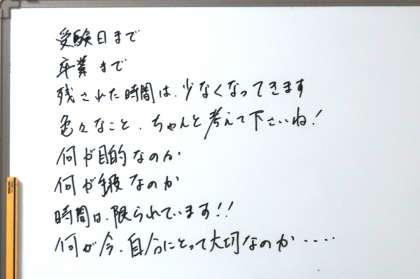 受験日まで
卒業まで
残された時間は、少なくなってきます
色々なこと、ちゃんと考えて下さいね!
何が目的なのか
何が鍵なのか
時間は、限られています!!
何が今、自分にとって大切なのか‥‥